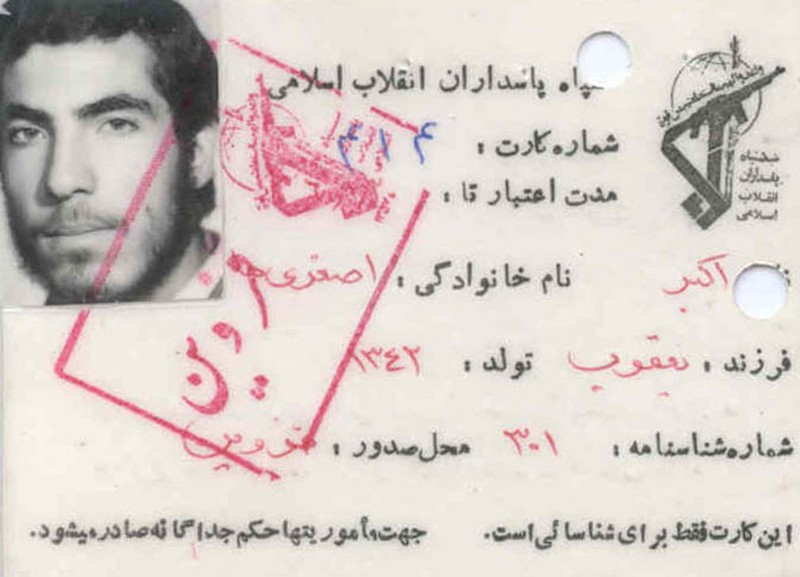 سپاه پاسداران انقلاب اسلامی
شماره کارت : ۴۱۴
مدت اعتبار تا :
سپاه
پاسداران
انقلاب
اسلامی
نام اکبر نام خانوادگی : اصغری
فرزند : یعقوب تولد : ۱۳۴۲
شماره شناسنامه : ۳۰۱ محل صدور : قزوین
این کارت فقط برای شناسائی است. جهت مأموریتها حکم جداگانه صادر میشود.